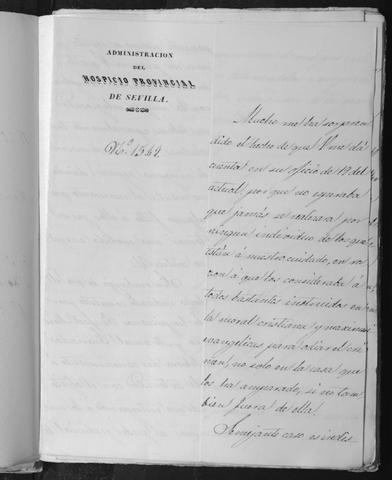 ADMINISTRACION
DEL
HOSPICIO PROVINCIAL
DE SEVILLA.
N.º 1564.
Mucho me ha sorpren
dido el hecho de que V. me dá
cuenta en su oficio de 19 del
actual, por que no esperaba
que jamás se realizara por
ningun individuo de los que
están á nuestro cuidado, en ra
zon á que los consideraba á
todos bastante instruidos en
la moral cristiana y maximas
evangelicas para odiar el cri
men, no solo en la casa que
los ha amparado, si no tam
bien fuera de ella.
Semejante caso es indis